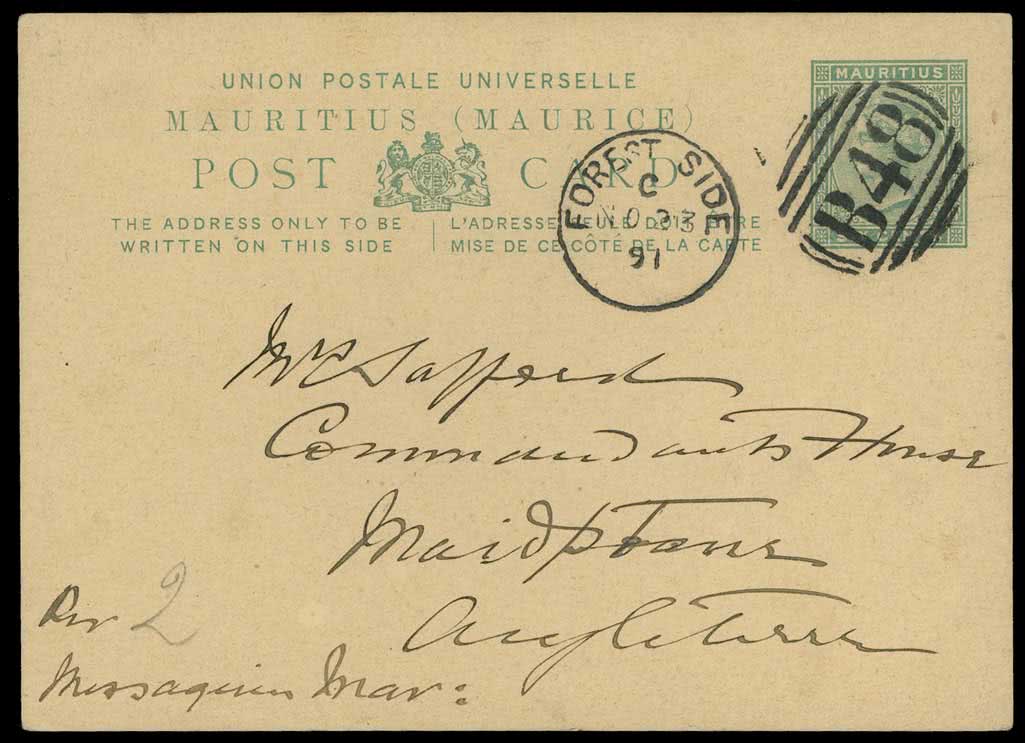 UNION POSTALE UNIVERSELLE
MAURITIUS (MAURICE)
POST CARD
THE ADDRESS ONLY TO BE
WRITTEN ON THIS SIDE
L'ADRESSE SEULE DOIT ETRE
MISE DE CE CÔTÉ DE LA CARTE
MAURITIUS
B48
FOREST SIDE
C
NO 23
91
Mrs Safford
Commandants House
Maidstone
Angleterre
Per 2
Messageries Mar: